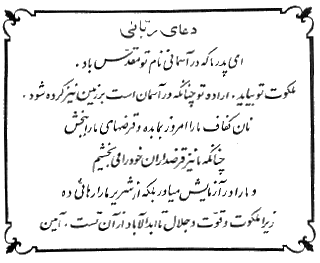 دعای ربّانی
ای پدر ما که در آسمانی نام تو مقدّس باد .
ملکوت تو بیاید . اراده تو چنانکه در آسمان است بر زمین نیز کرده شود .
نان کفاف ما را امروز بما بده و قرضهای ما را ببخش
چنانکه ما نیز قرضداران خود را می بخشیم
و ما را در آزمایش میاور بلکه از شریر ما را رهائی ده
زیرا ملکوت و قوّت و جلال تا ابدالآباد از آن تست . آمین